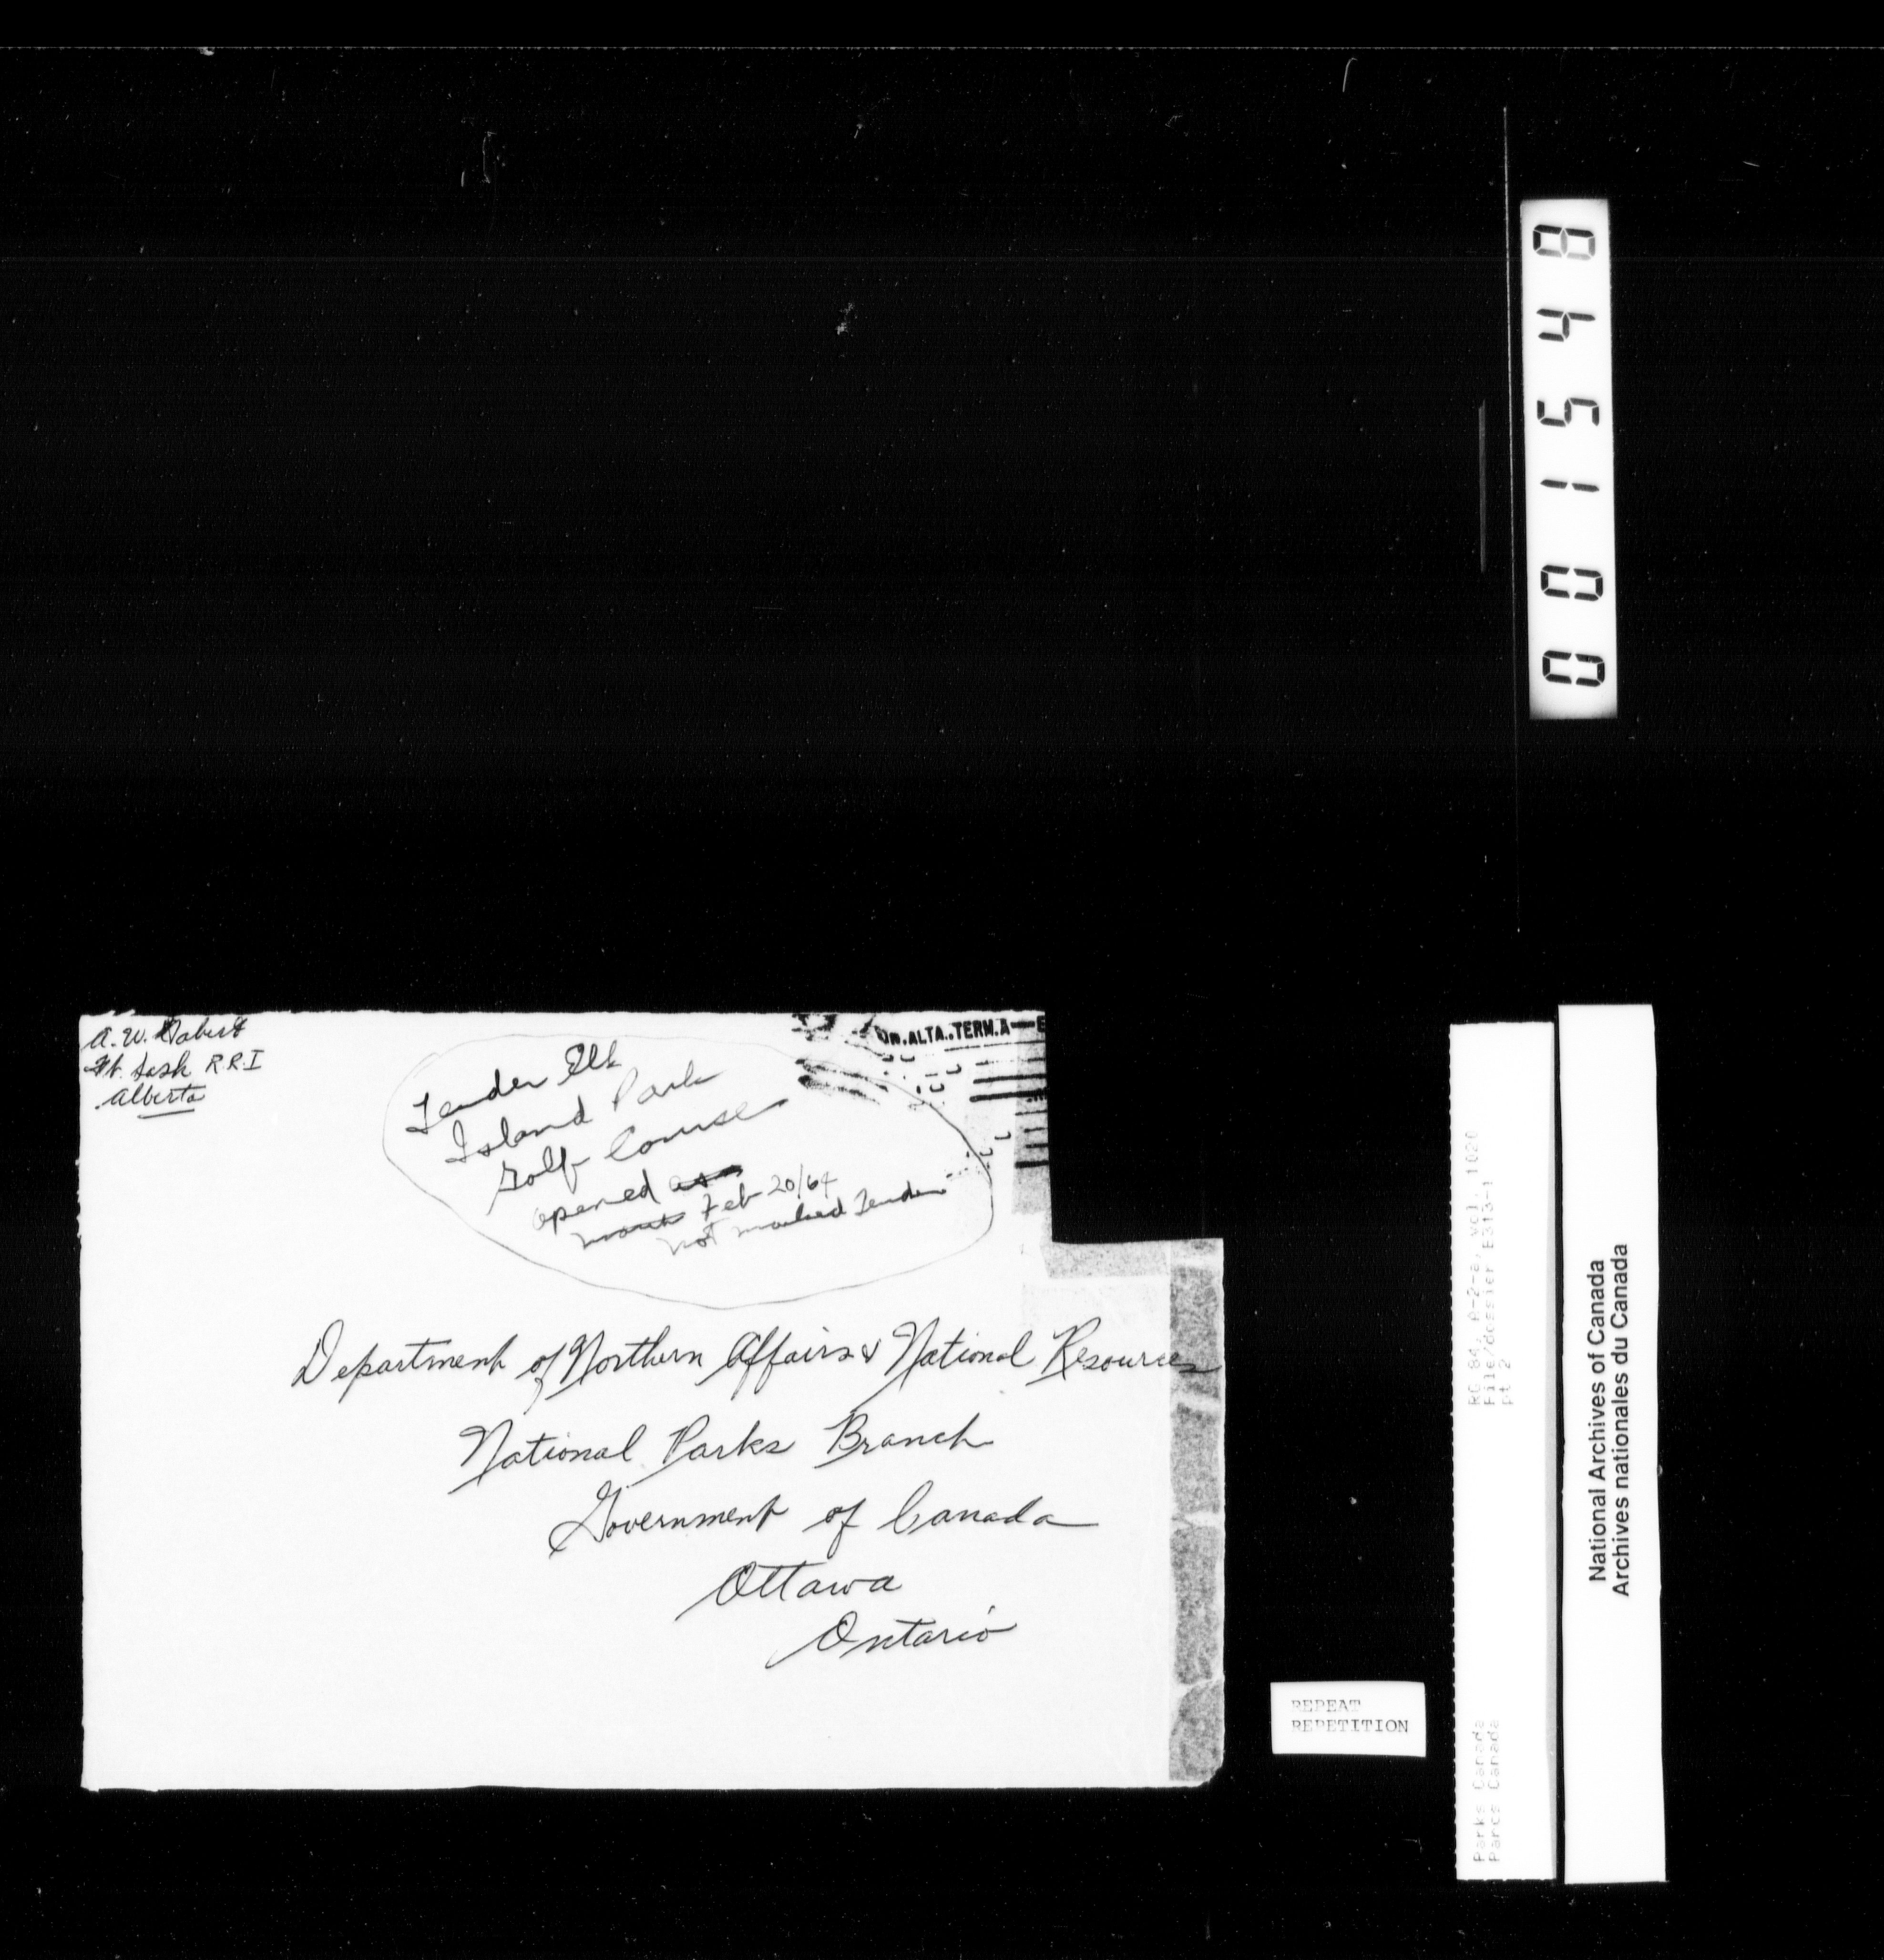 A. W. Dabert
Ft. Sask R.R.I
Alberta
Tender Elk
Island Park
Golf Course
opened as
Feb 20/64
not marked Tender
ON. ALTA. TERM. A
Department of Northern Affairs & National Resources
National Parks Branch
Government of Canada
Ottawa
Ontario
001548
REPEAT
REPETITION
RG 84, A-2-a, vol. 1020
File/dossier E313-1
pt 2
Parks Canada
Parcs Canada
National Archives of Canada
Archives nationales du Canada